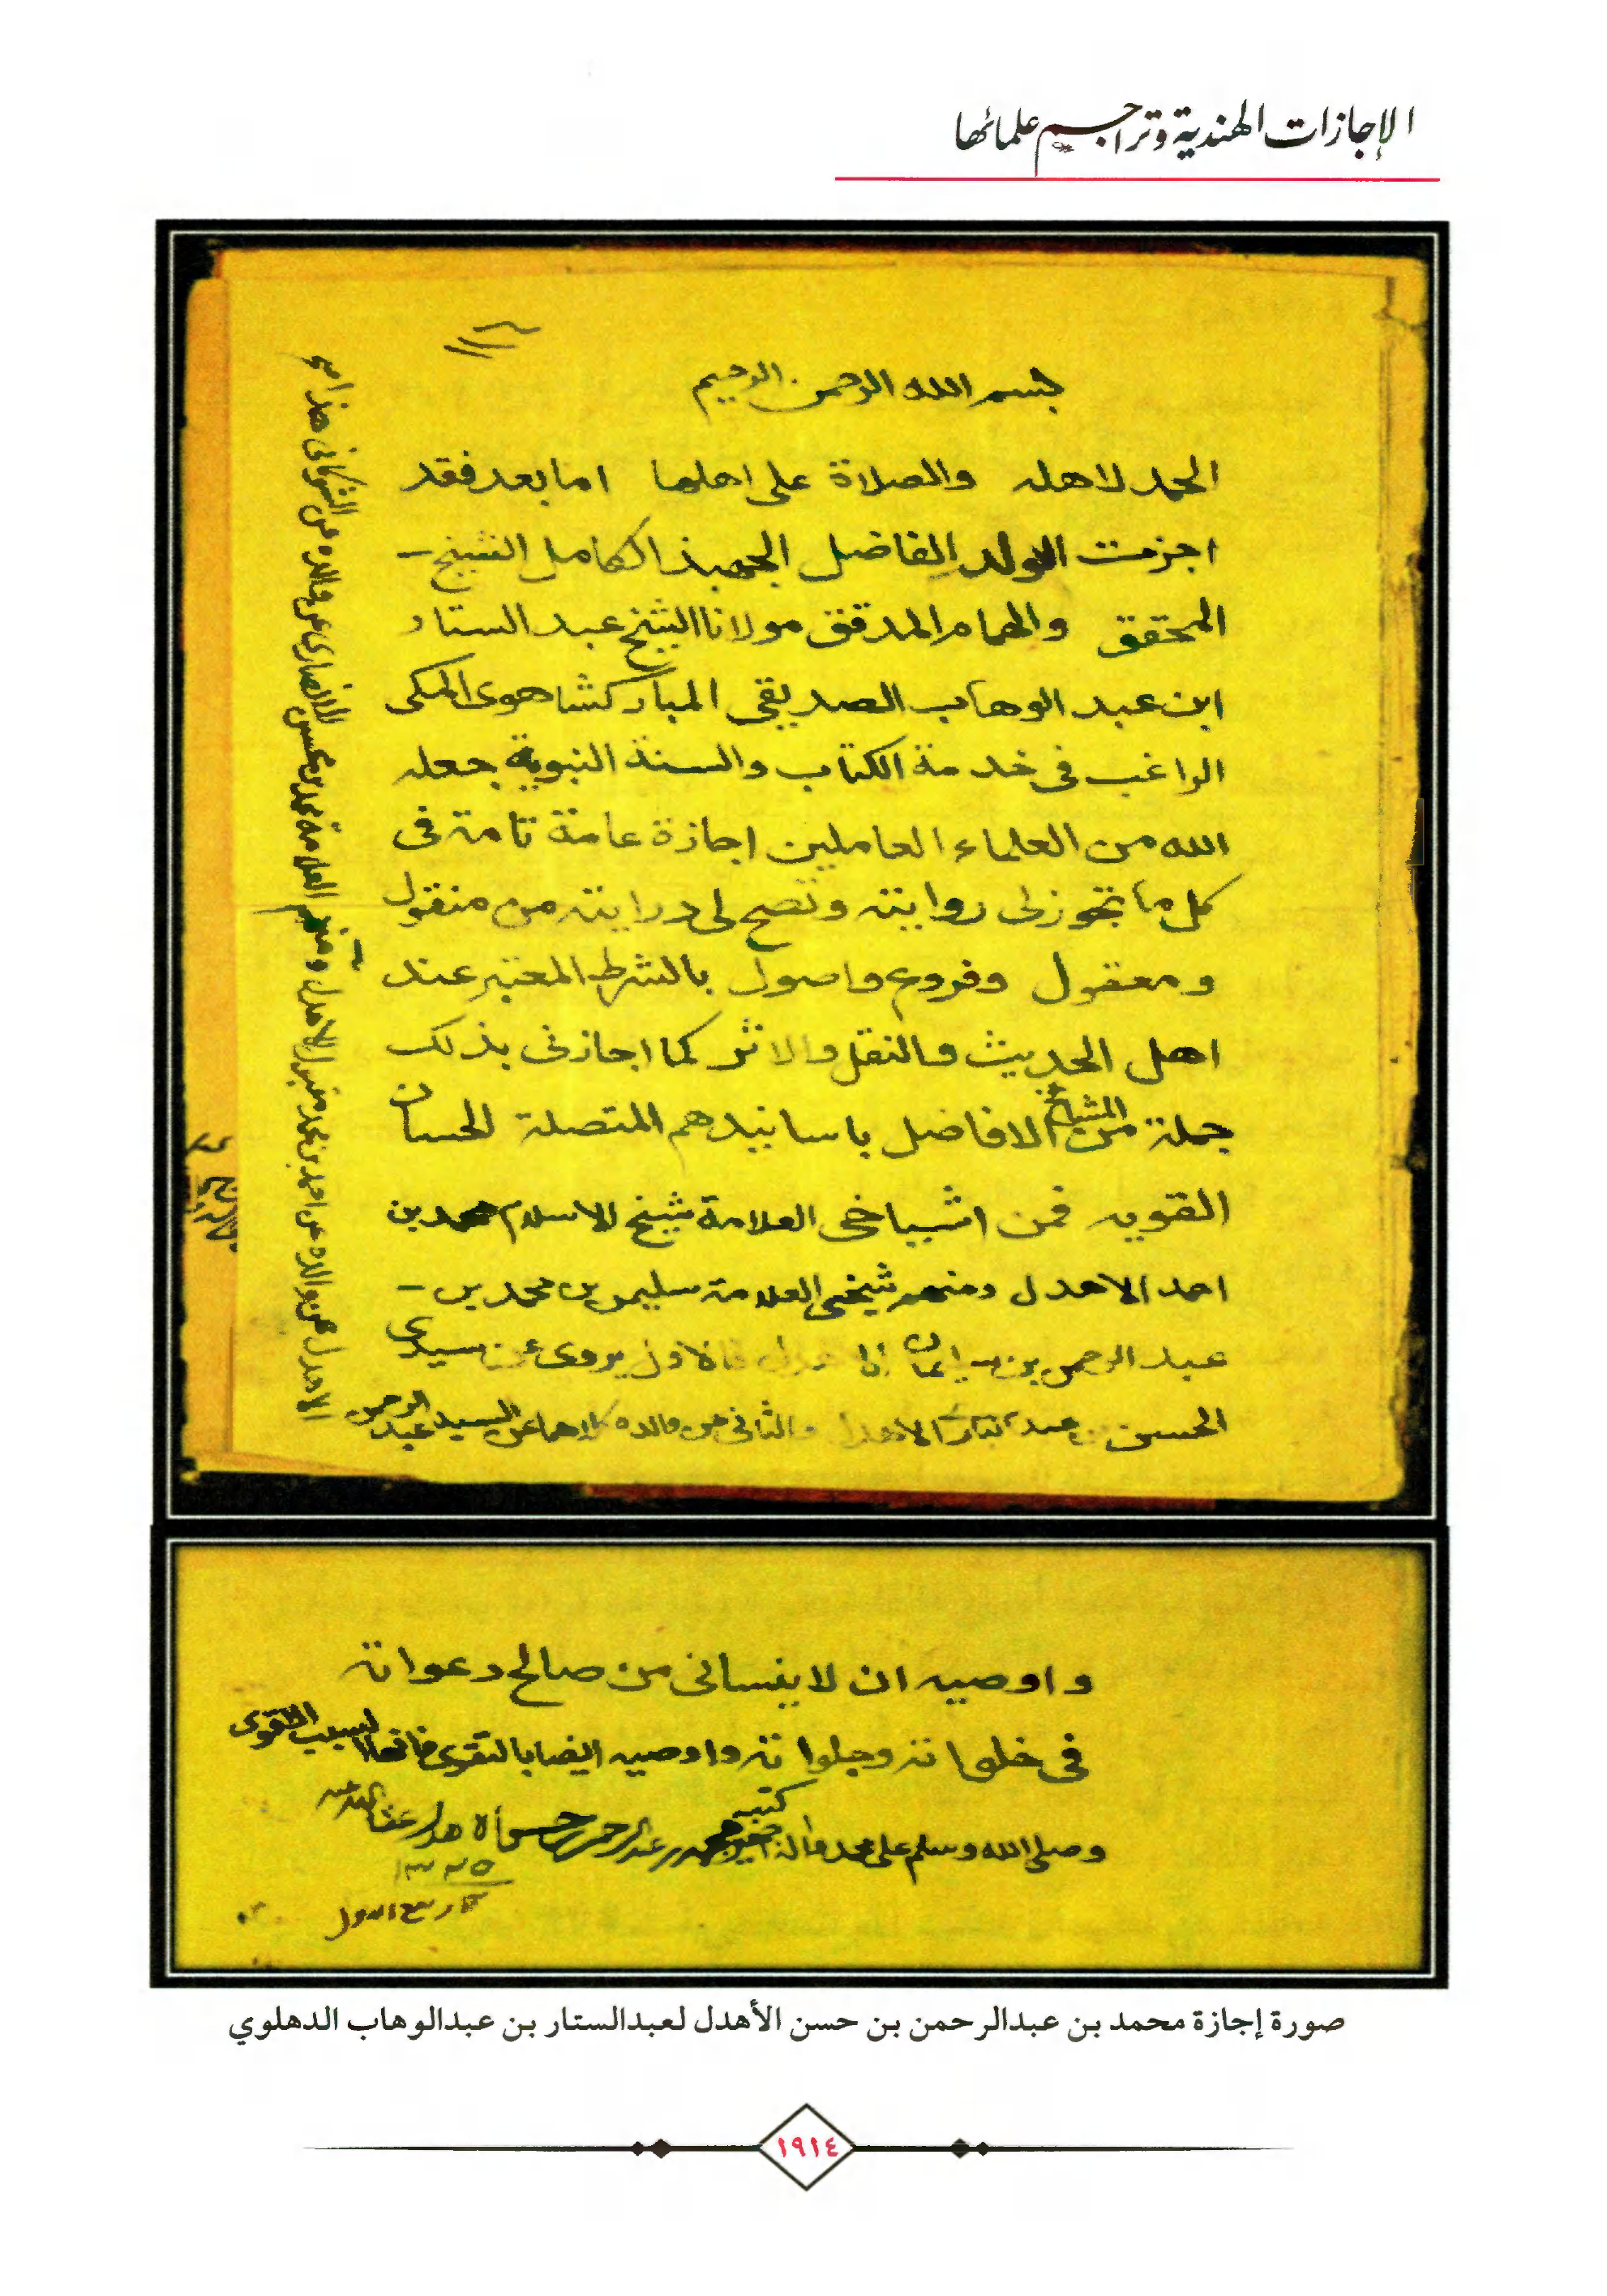 الإجازات الهندية وتراجيم علمائها
بسم الله الرحمن الرحيم
الحمد لاهله والصلاة على اهلها اما بعد فقد
اجزت الولد الفاضل الجهبذ الكامل الشيخ -
المحقق والهمام المدقق مولانا الشيخ عبد الستار
ابن عبد الوهاب الصديقي المباركشاهوى المكى
الراغب فى خدمة الكتاب والسنة النبوية جعله
الله من العلماء العاملين اجازة عامة تامة فى
كل ما تجوز لى روايته وتصح لى درايته من منقول
ومعقول وفروع واصول بالشرط المعتبر عند
اهل الحديث والنقل والاثر كما اجازنى بذلك
جملة من المشايخ الافاضل باسانيدهم المتصلة الحسان
القويه فمن اشياخى العلامة شيخ الاسلام محمد بن
احمد الاهدل ومنهم شيخى العلامة سليمن بن محمد بن -
عبد الرحمن بن سليمان فالاول يروى عن سيدى
الحسن بن عبد البارى الاهدل والثانى عن والده كلاهما عن السيد عبد الرحمن
الاهدل عن والده عن احمد بن محمد مقبول الاهدل ومنهم العلامة محمد بن محسن الانصارى عن والده عن الشوكانى هذا
واوصيه ان لا ينسانى من صالح دعواته
فى خلواته وجلواته واوصيه ايضا بالتقوى فانها السبب الاقوى
وصلى الله وسلم على محمد واله كتبه الحقير محمد بن عبد الرحمن بن حسن الاهدل عفا الله عنه
١٣٢٥
ربيع الاول
صورة إجازة محمد بن عبدالرحمن بن حسن الأهدل لعبدالستار بن عبدالوهاب الدهلوي
١٩١٤